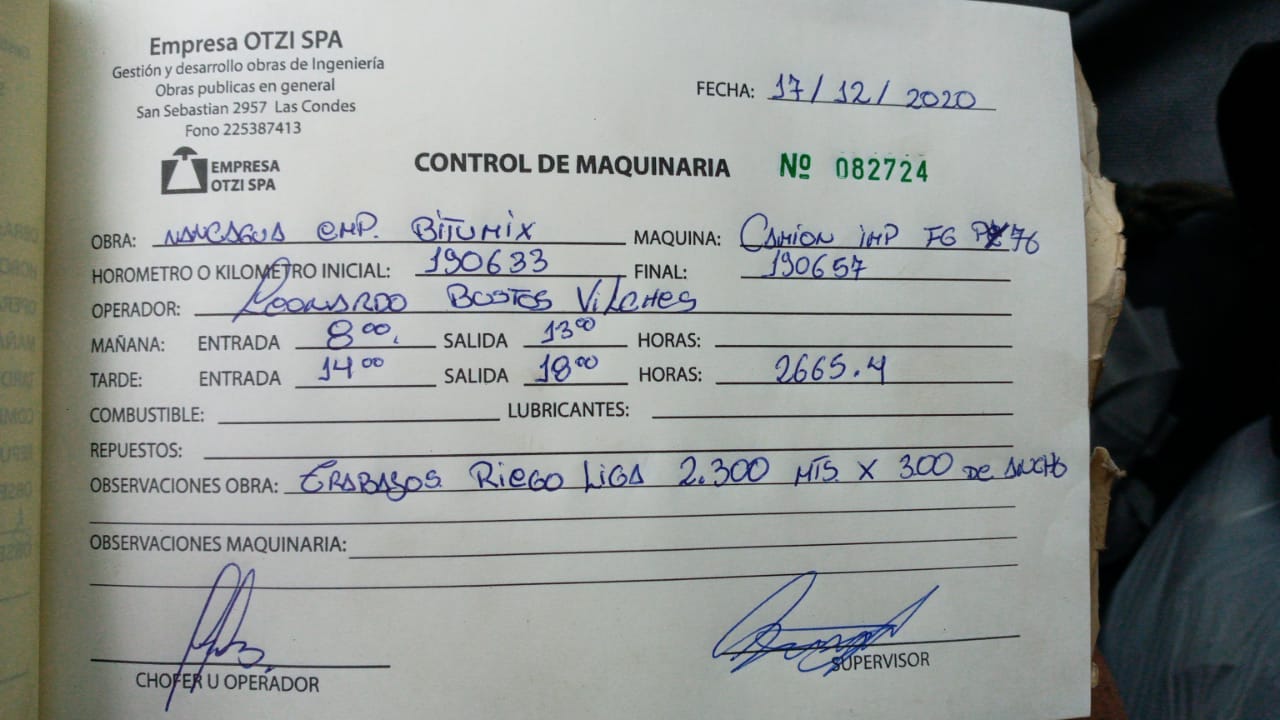 Empresa OTZI SPA
Gestión y desarrollo obras de Ingeniería
Obras publicas en general
San Sebastian 2957 Las Condes
Fono 225387413
FECHA: 17/12/2020
EMPRESA
OTZI SPA
CONTROL DE MAQUINARIA Nº 082724
OBRA: NANCAGUA EMP. BITUMIX MAQUINA: CAMION IMP FG 76
HOROMETRO O KILOMETRO INICIAL: 190633 FINAL: 190657
OPERADOR: LEONARDO BOSTOS VILCHES
MAÑANA: ENTRADA 8:00. SALIDA 13:00 HORAS:
TARDE: ENTRADA 14:00 SALIDA 18:00 HORAS: 2665.4
COMBUSTIBLE: LUBRICANTES:
REPUESTOS:
OBSERVACIONES OBRA: TRABAJOS RIEGO LIGA 2.300 MTS. X 3.00 DE ANCHO
OBSERVACIONES MAQUINARIA:
CHOFER U OPERADOR SUPERVISOR